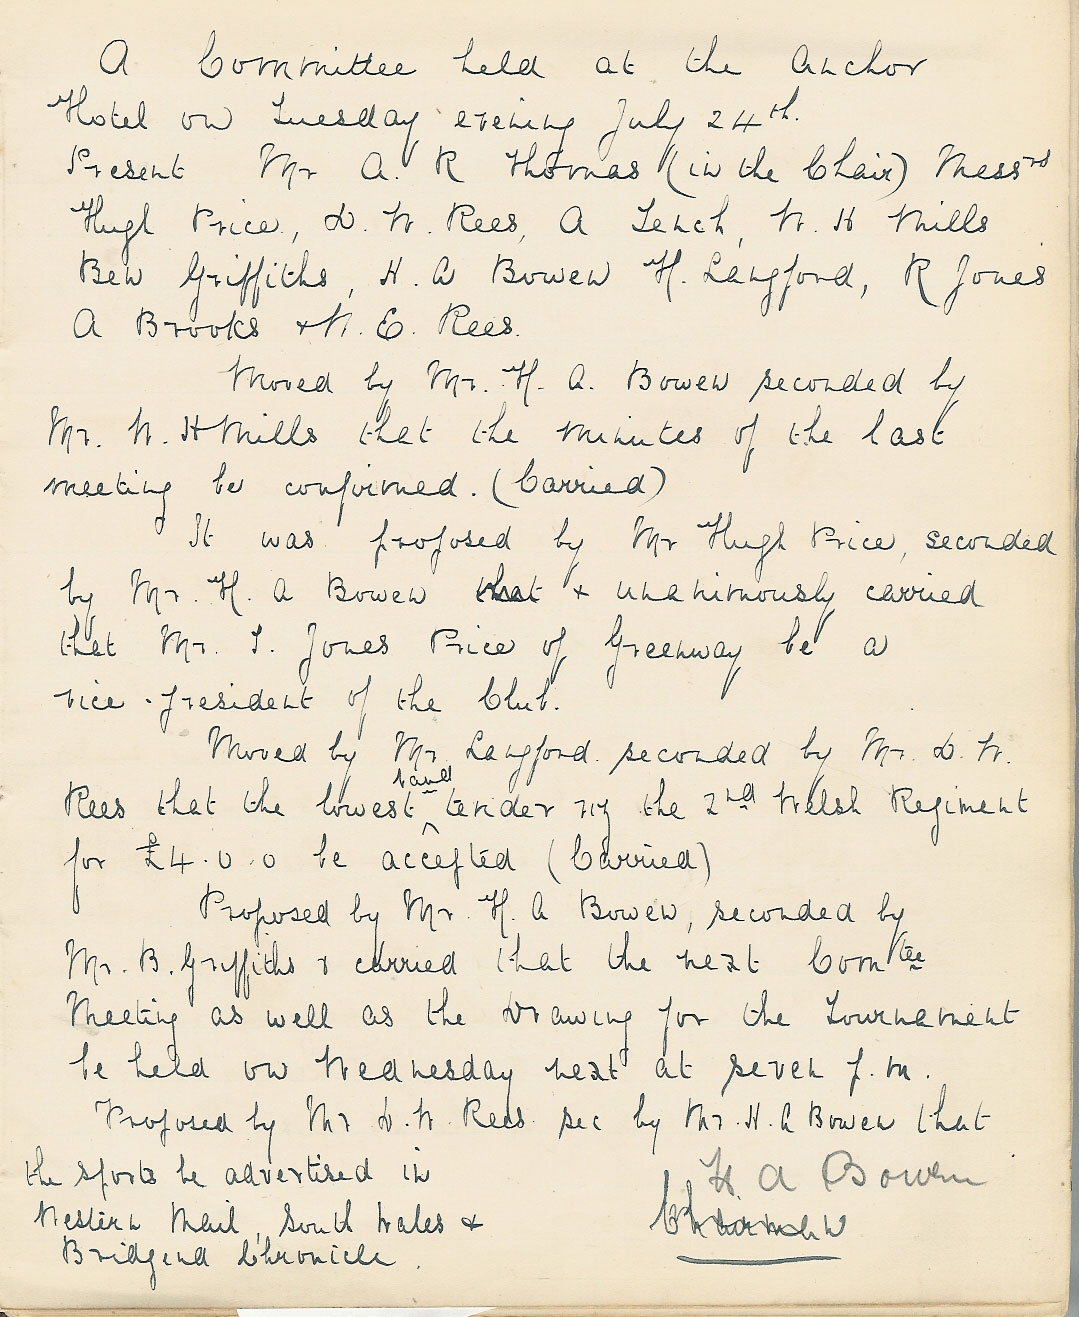 A Committee held at the Anchor
Hotel on Tuesday evening July 24th.
Present Mr A. R Thomas (in the Chair) Messrs
Hugh Price, D. W. Rees, A Lench, W. H Mills
Ben Griffiths, H. A Bowen H. Langford, R Jones
A Brooks & W. E. Rees.
Moved by Mr. H. A. Bowen seconded by
Mr. W. H Mills that the minutes of the last
meeting be confirmed. (Carried)
It was proposed by Mr Hugh Price, seconded
by Mr. H. A Bowen that & unanimously carried
that Mr. J. Jones Price of Greenway be a
vice-president of the Club.
Moved by Mr. Langford seconded by Mr. D. W.
band
Rees that the lowest tender viz the 2nd Welsh Regiment
for £4.0.0 be accepted (Carried)
Proposed by Mr. H. A Bowen, seconded by
Mr. B. Griffiths & carried that the next Comtee
Meeting as well as the Drawing for the Tournament
be held on Wednesday next at seven p.m.
Proposed by Mr D. W. Rees sec by Mr. H. A Bowen that
the sports be advertised in
Western Mail, South Wales &
Bridgend Chronicle.
H A Bowen
Chairman